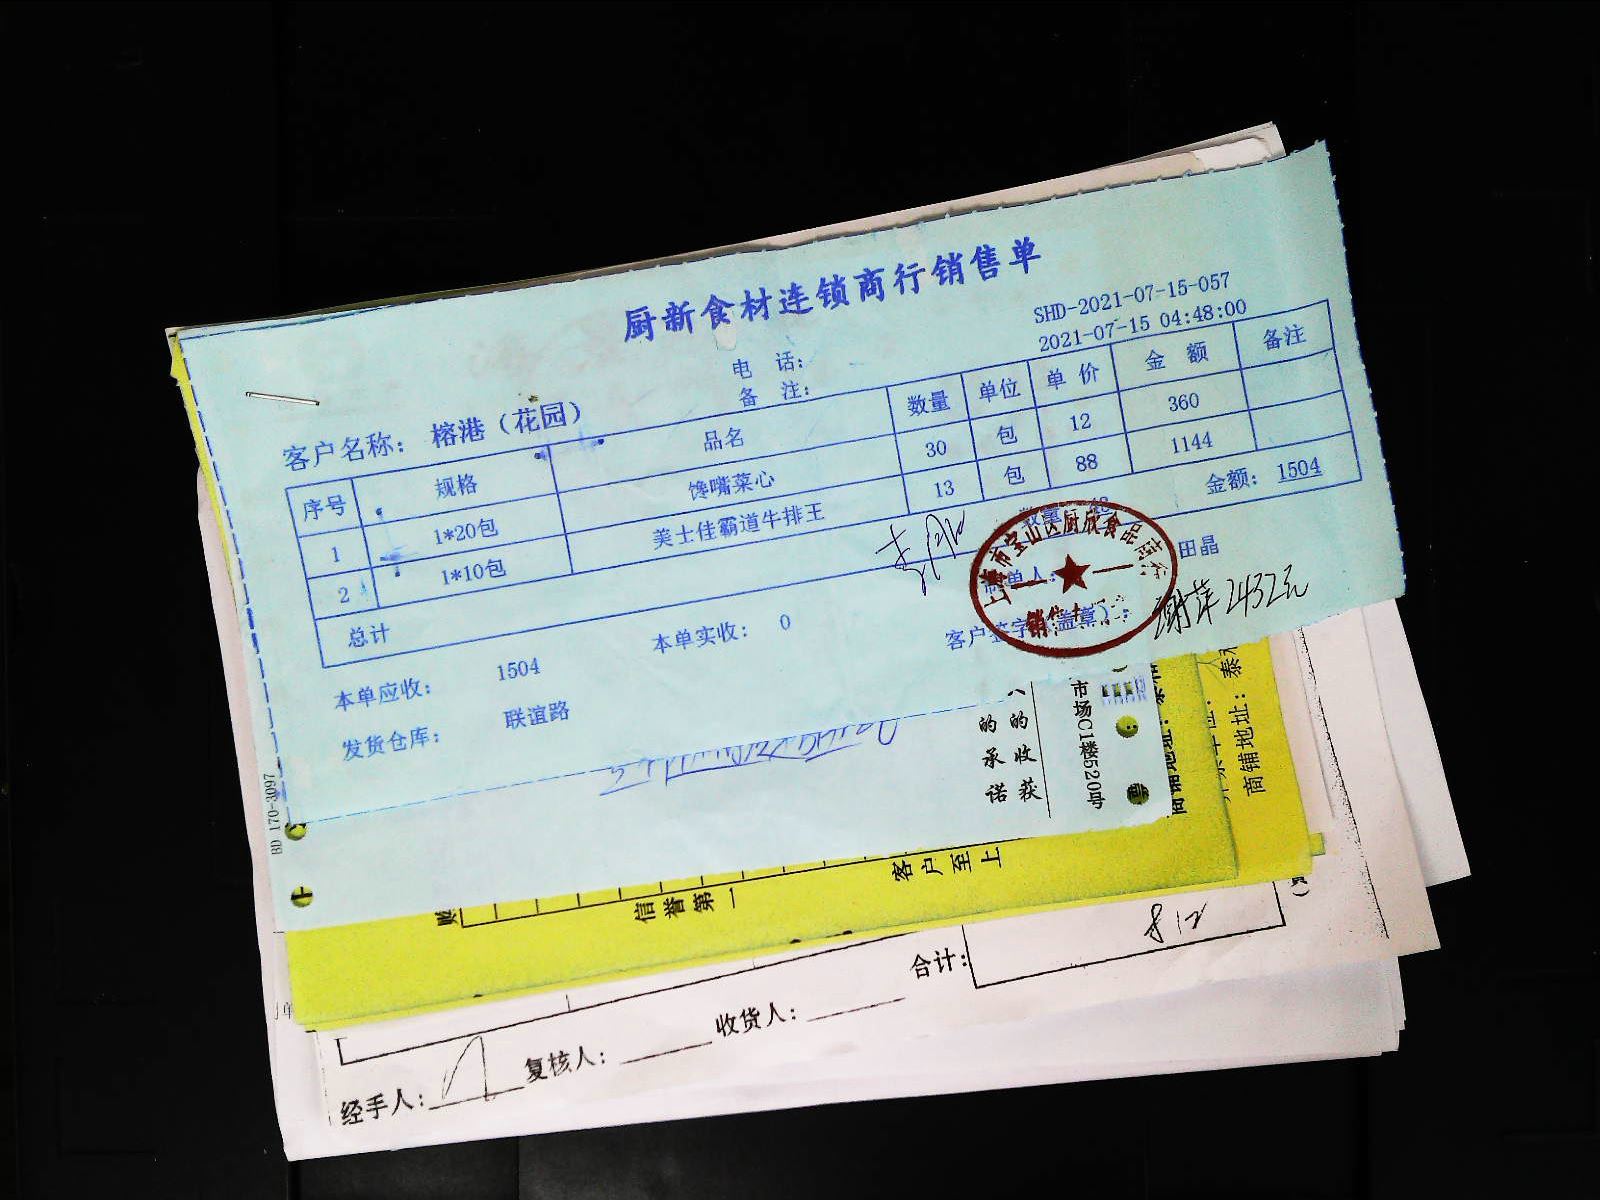 厨新食材连锁商行销售单
SHD-2021-07-15-057
2021-07-15 04:48:00
电 话:
备 注:
客户名称: 榕港（花园）
序号 规格 品名 数量 单位 单价 金额 备注
1 1*20包 馋嘴菜心 30 包 12 360
2 1*10包 美士佳霸道牛排王 13 包 88 1144
总计 数量: 43 金额: 1504
本单应收: 1504 本单实收: 0 制单人: 田晶
发货仓库: 联谊路 客户签字(盖章):
谢萍 2432元
上海市宝山区厨欣食品商行
BD 170-3097
的承诺
的收获
市场C1楼520号
商铺地址:
商铺地址: 泰
客户至上
信誉第一
合计: 812
收货人:
复核人:
经手人: